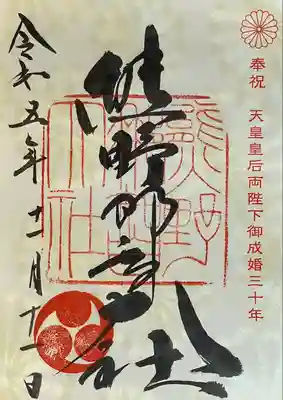 奉祝 天皇皇后両陛下御成婚三十年
熊野那智大社
令和五年十一月十一日